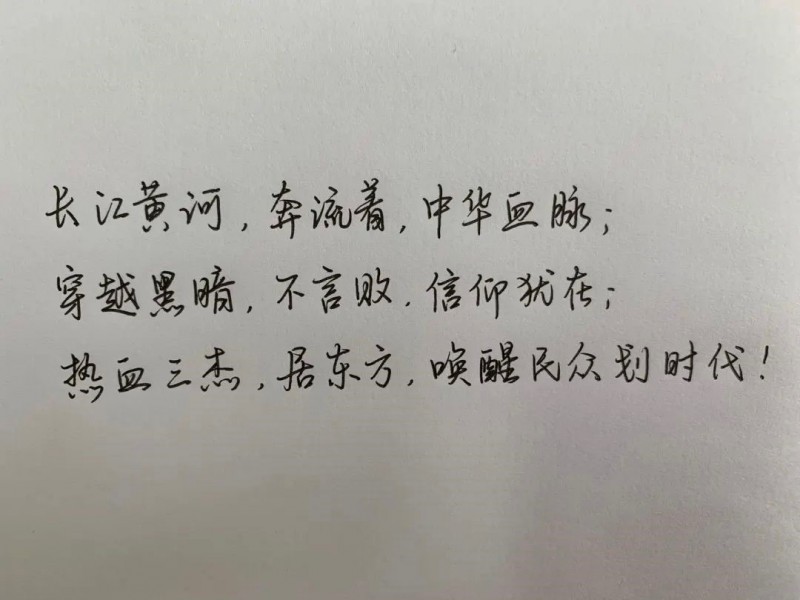 长江黄河,奔流着,中华血脉;
穿越黑暗,不言败,信仰犹在;
热血三杰,居东方,唤醒民众划时代!